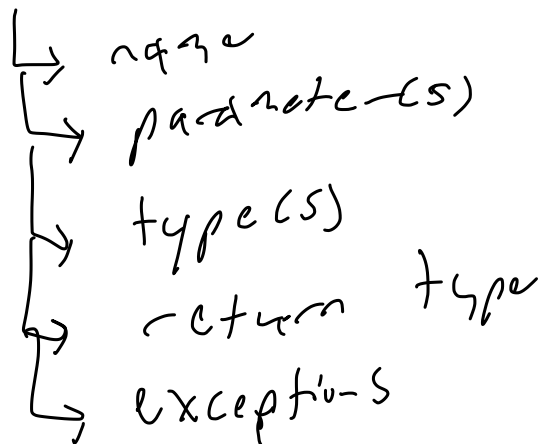 name
parameter(s)
type(s)
return type
exceptions